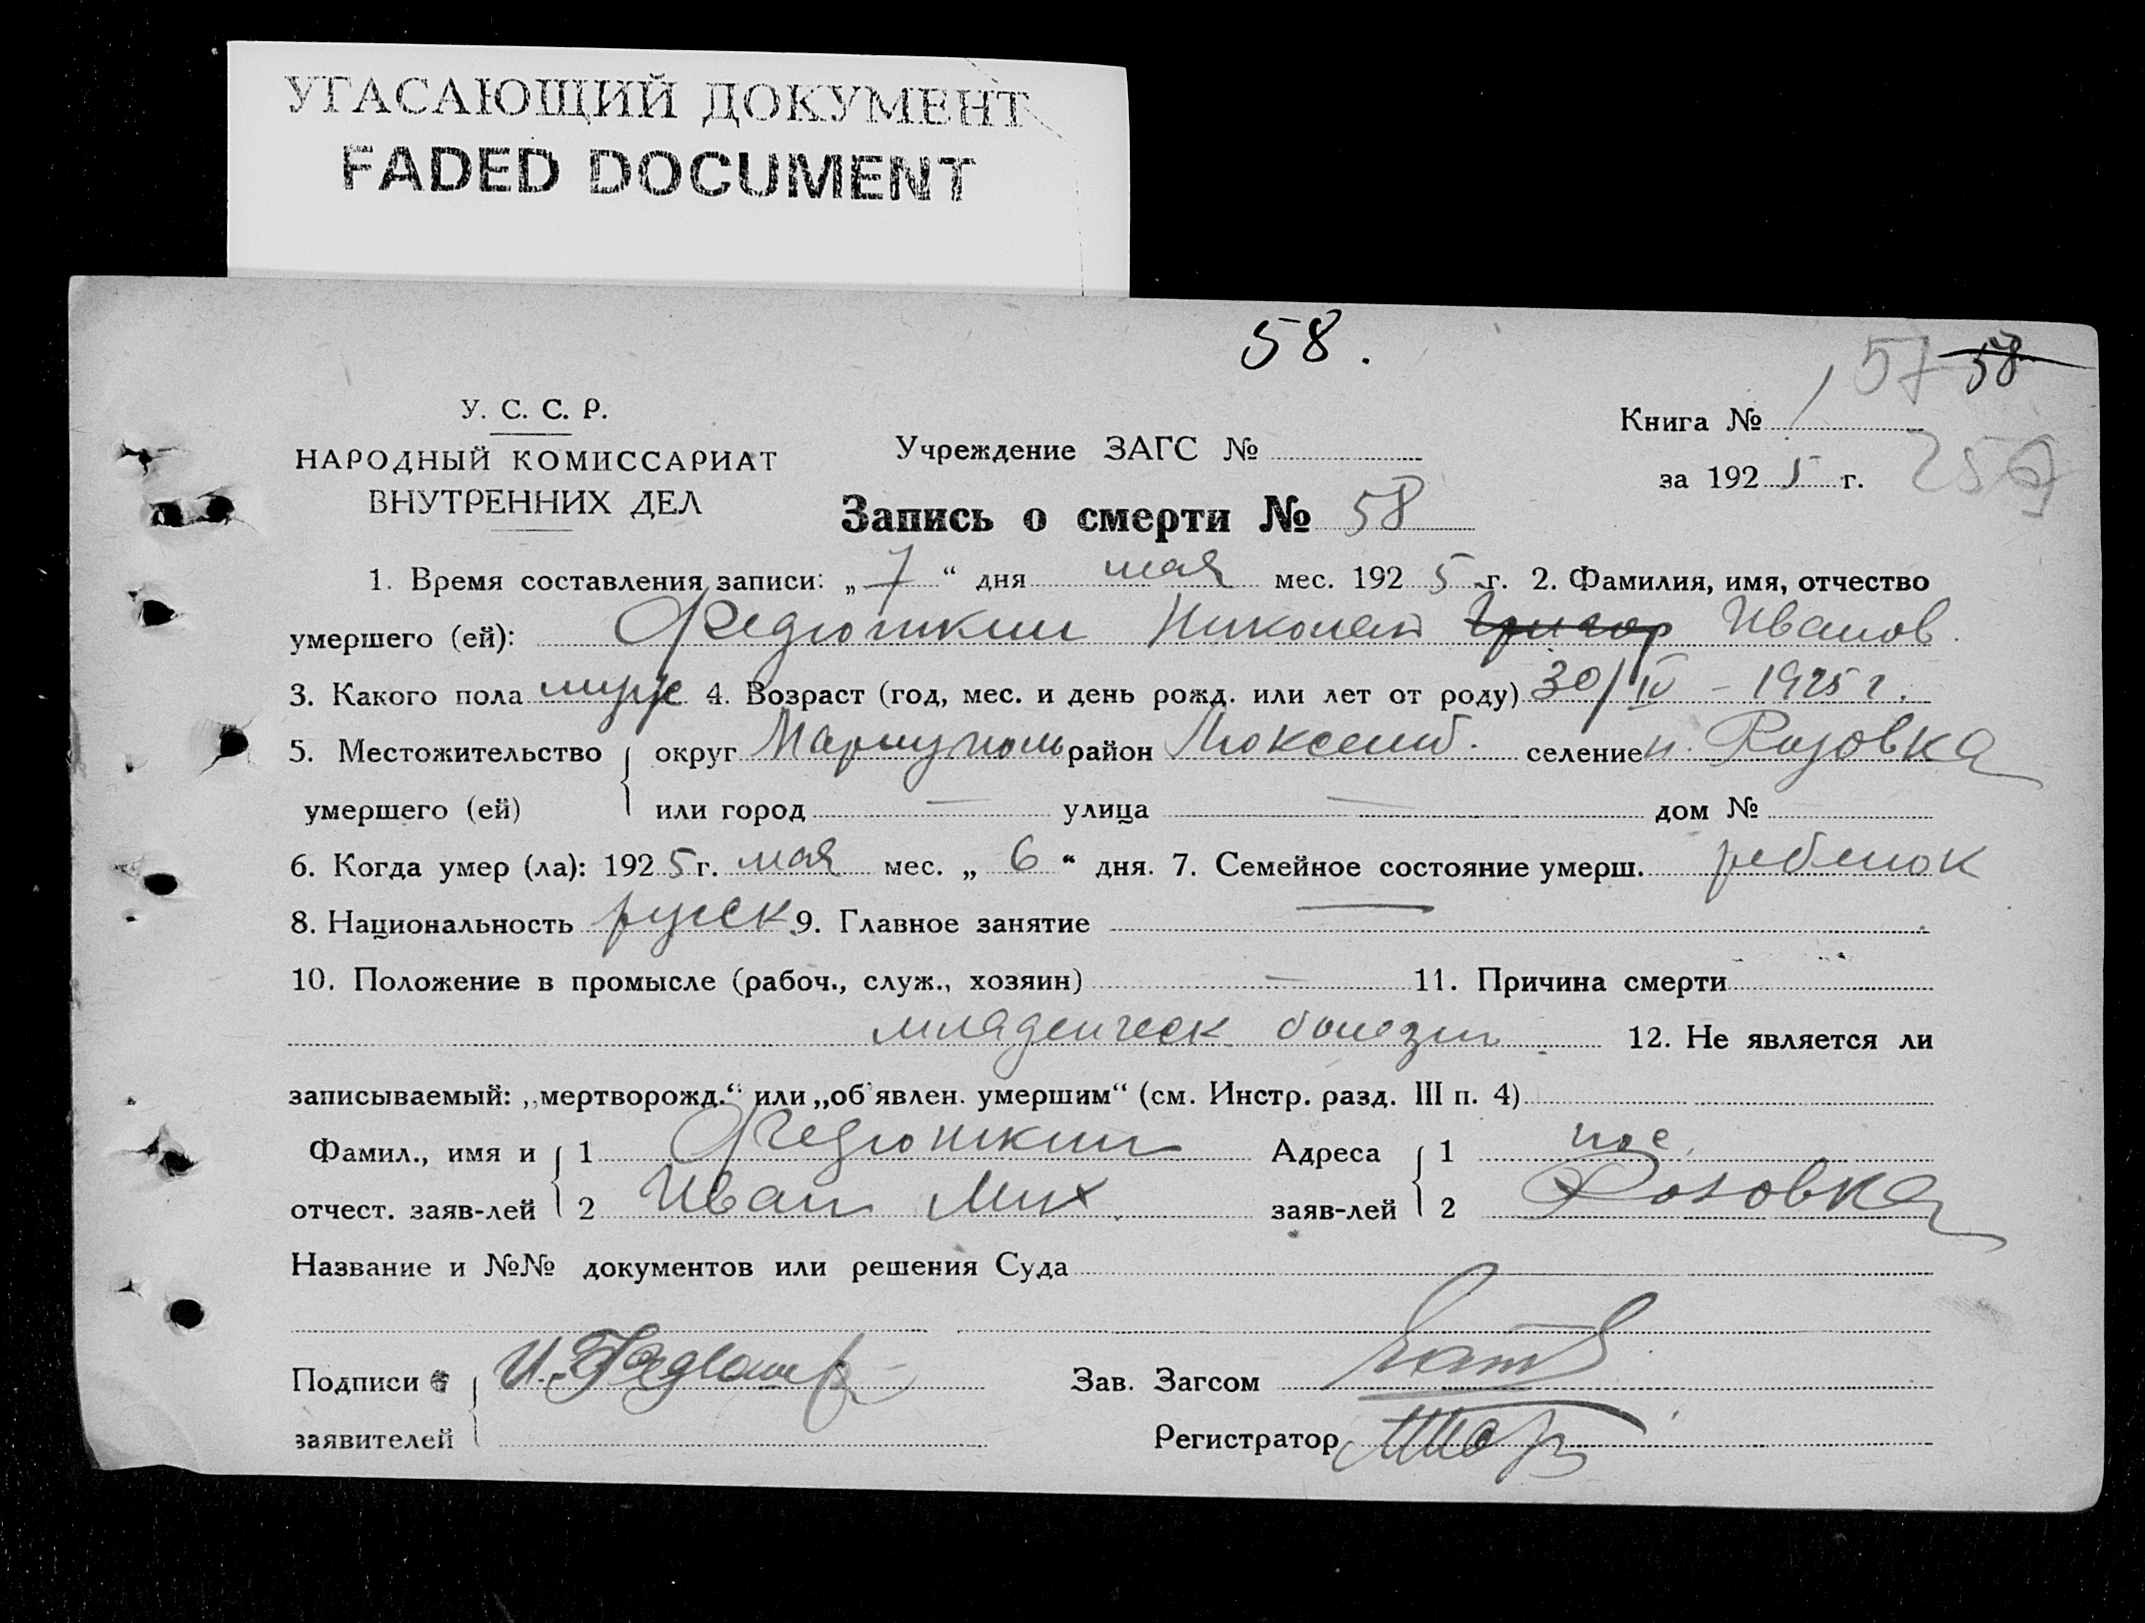 УГАСАЮЩИЙ ДОКУМЕНТ
FADED DOCUMENT
58.
57 58
У. С. С. Р.
Книга № 1
НАРОДНЫЙ КОМИССАРИАТ
Учреждение ЗАГС №
ВНУТРЕННИХ ДЕЛ
за 1925 г.
Запись о смерти № 58
1. Время составления записи: „7“ дня мая мес. 1925 г. 2. Фамилия, имя, отчество
умершего (ей): Федюшкин Николай Григор Иванов.
3. Какого пола муж 4. Возраст (год, мес. и день рожд. или лет от роду) 30/IV – 1925 г.
5. Местожительство округ Мариуполь район Люксемб. селение п. Розовка
умершего (ей) или город — улица — дом №
6. Когда умер (ла): 1925 г. мая мес. „6“ дня. 7. Семейное состояние умерш. ребенок
8. Национальность русск 9. Главное занятие —
10. Положение в промысле (рабоч., служ., хозяин) — 11. Причина смерти
младенческ болезни 12. Не является ли
записываемый: „мертворожд.“ или „об'явлен. умершим“ (см. Инстр. разд. III п. 4)
Фамил., имя и 1 Федюшкин Адреса 1 пос.
отчест. заяв-лей 2 Иван Мих. заяв-лей 2 Розовка
Название и №№ документов или решения Суда
Подписи И. Федюшк Зав. Загсом
заявителей Регистратор